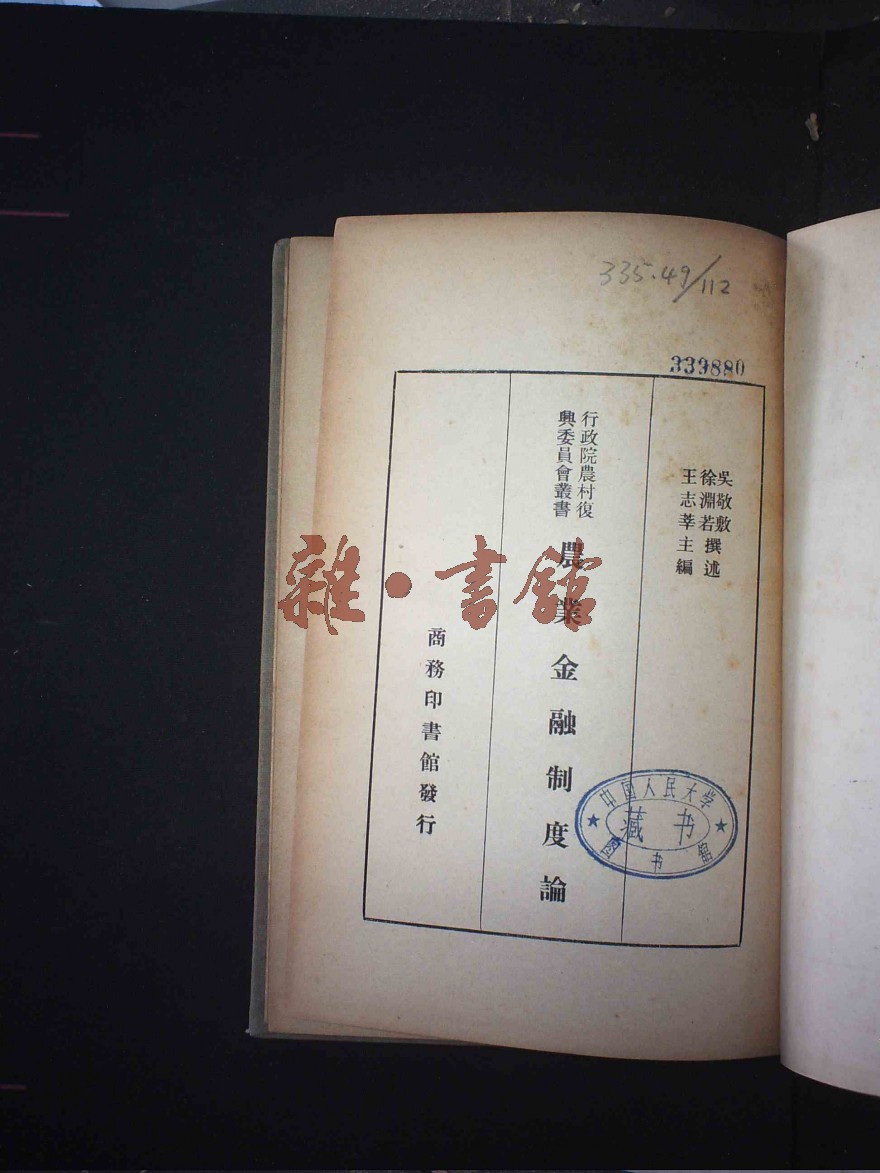 335.49/112
339880
吳敬敷
徐淵若撰述
王志莘主編
行政院農村復
興委員會叢書
農業金融制度論
商務印書館發行
中国人民大学
藏书
图书馆
雜·書館